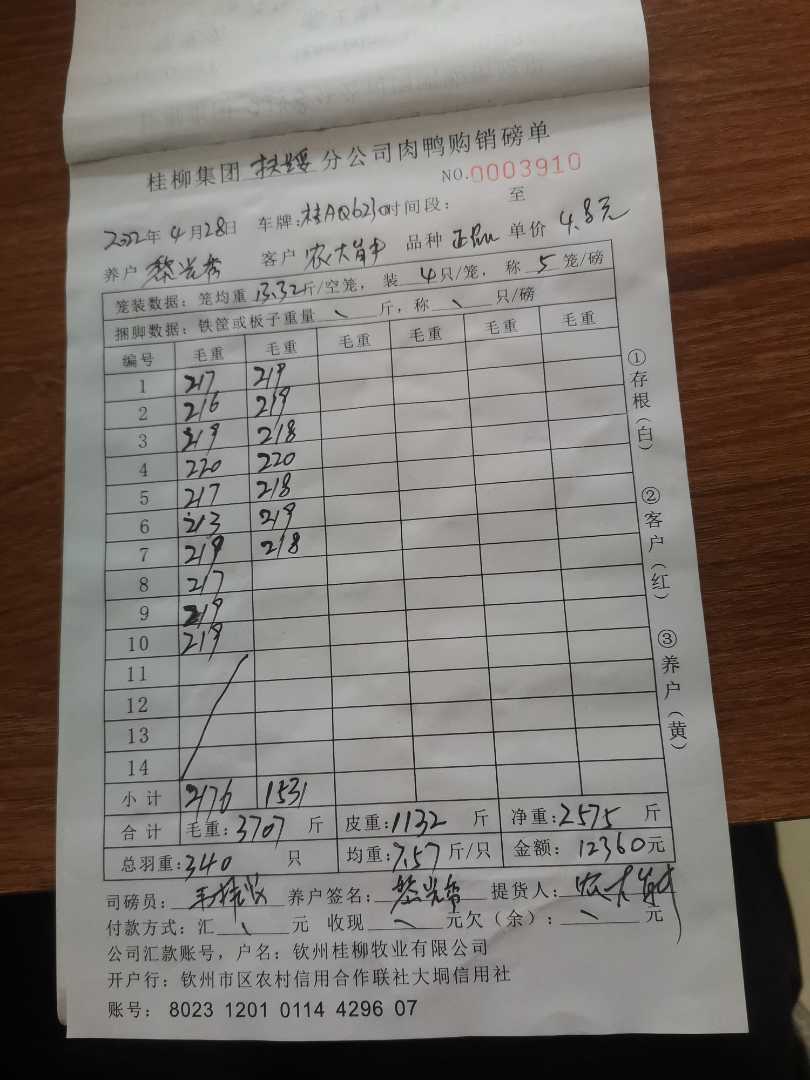 桂柳集团 扶绥 分公司肉鸭购销磅单
NO.0003910
2022年4月28日 车牌:桂AQ6230时间段: 至
养户 黎光希 客户 农大肖中 品种 正品 单价 4.8元
笼装数据:笼均重 13.32斤/空笼,装 4只/笼,称 5笼/磅
捆脚数据:铁筐或板子重量 斤,称 只/磅
编号 毛重 毛重 毛重 毛重 毛重 毛重
1 217 219
2 216 219
3 219 218
4 220 220
5 217 218
6 213 219
7 219 218
8 217
9 219
10 219
11
12
13
14
小计 2176 1531
合计 毛重:3707斤 皮重:1132斤 净重:2575斤
总羽重:340只 均重:7.57斤/只 金额:12360元
司磅员: 养户签名:黎光希 提货人:
付款方式:汇 元 收现 元欠(余): 元
公司汇款账号,户名:钦州桂柳牧业有限公司
开户行:钦州市区农村信用合作联社大垌信用社
账号: 8023 1201 0114 4296 07
①存根(白) ②客户(红) ③养户(黄)